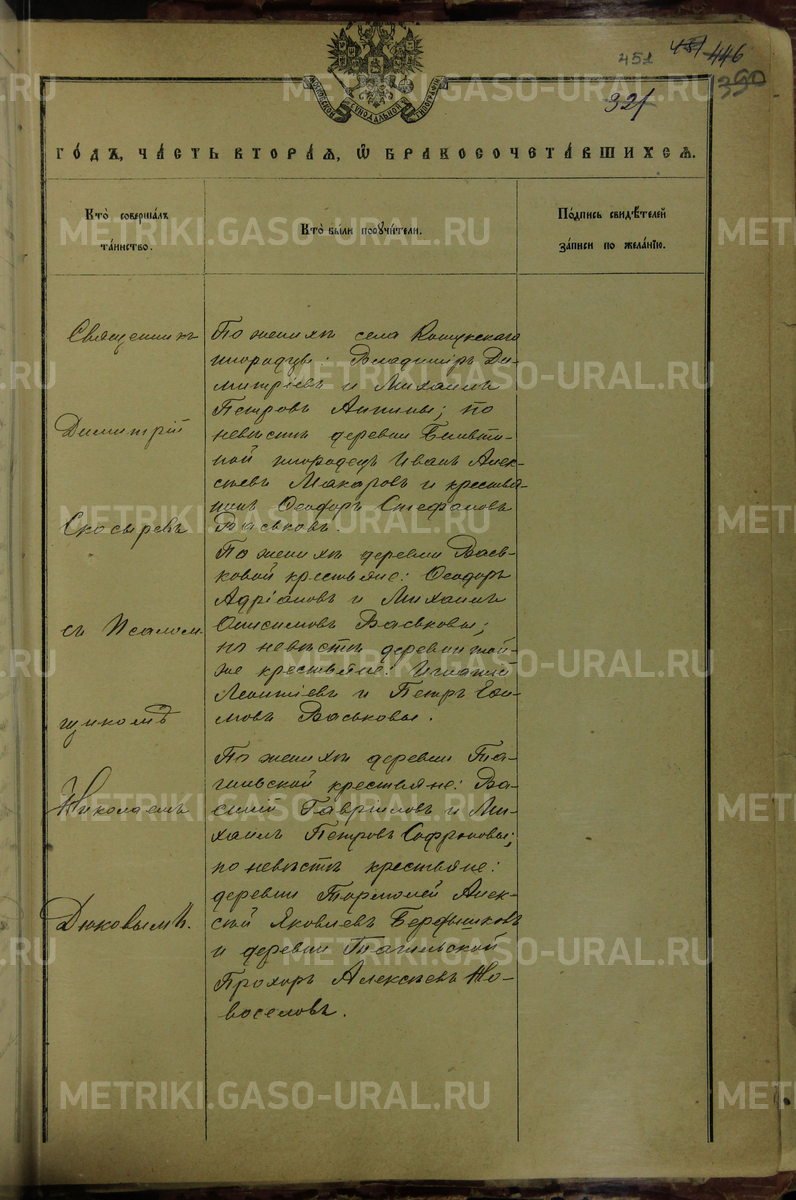 451 446
451
390
321
МОСКОВСКОЙ СѴНОДАЛЬНОЙ ТИПОГРАФІИ
ГО́ДЪ, ЧА́СТЬ ВТОРА́Ѧ, Ѽ БРАКОСОЧЕТА́ВШИХСѦ.
Кто̀ соверша́лъ
та́инство.
Кто̀ бы́ли порꙋчи́тели.
По́дпись свидѣ́телей
за́писи по жела́нїю.
Священникъ
Димитрій
Скосыревъ
съ Псалом-
щикомъ
Николаемъ
Дюковымъ.
По женихѣ села Кошукскаго
инородцы: Владиміръ Ди-
митріевъ и Михаилъ
Петровъ Анины; по
невѣстѣ деревни
ной инородецъ Иванъ Алек-
сѣевъ Макаровъ и крестья-
нинъ Ѳеодоръ Стефановъ
Васьковъ.
По женихѣ деревни Вась-
ковой крестьяне: Ѳеодоръ
Адріановъ и Михаилъ
Онисимовъ Васьковы;
по невѣстѣ деревни той-
же крестьяне: Игнатій
Леонтіевъ и Петръ Ефи-
мовъ Васьковы.
По женихѣ деревни Та-
гильской крестьяне: Ва-
силій Гавриловъ и Ми-
хаилъ Петровъ Софроновы;
по невѣстѣ крестьяне:
деревни Тормолей Алек-
сѣй Яковлевъ Бердышковъ
и деревни Тагильской
Прохоръ Алексѣевъ Но-
воселовъ.
METRIKI.GASO-URAL.RU